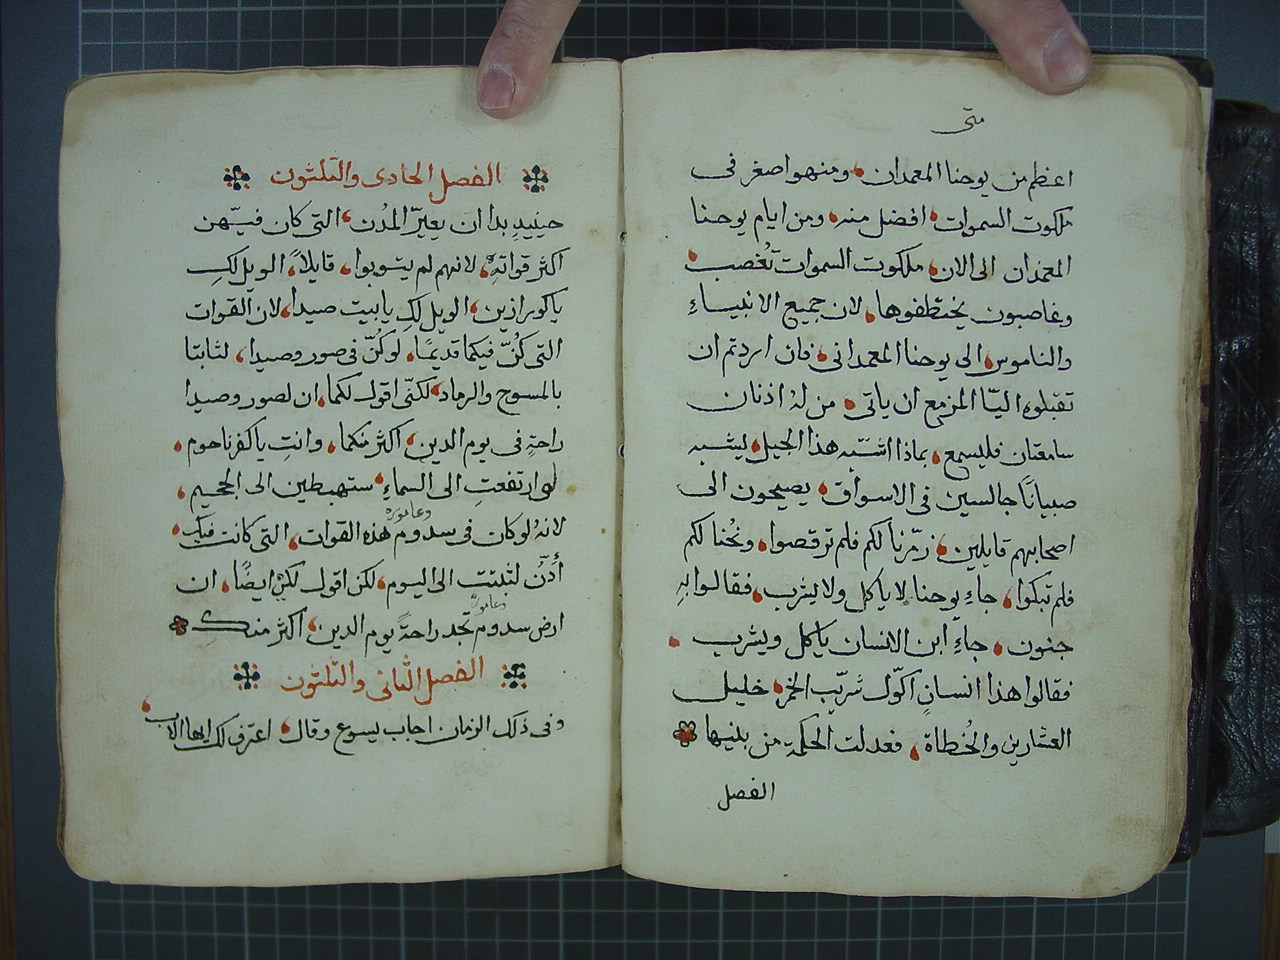 متى
اعظم من يوحنا المعمدان، ومنهو اصغر فى
ملكوت السموات، افضل منه، ومن ايام يوحنا
المعمدان الى الان، ملكوت السموات تُغصب،
وغاصبون يختطفوها، لان جميع الانبياءِ
والناموس، الى يوحنا المعمدانى، فان اردتم ان
تقبلوه اليّا المزمع ان ياتى، من لهُ اذنان
سامعتان فليسمع، بماذا اشبّه هذا الجيل، يشبه
صبيانًا جالسين فى الاسواق، يصيحون الى
اصحابهم قايلين، زمّرنا لكم فلم ترقصوا، ونُحنا لكم
فلم تبكوا، جاءِ يوحنا لا ياكل ولا يشرب، فقالوا بهِ
جنون، جاءِ ابن الانسان ياكل ويشرب،
فقالوا هذا انسانٍ اكّول شرّيب الخمر، خليل
العشارين والخُطاة، فعدلت الحكمة من بنيها
الفصل
الفصل الحادى والثلثون
حينيدٍ بدا ان يعيرّ المدُن، التى كان فيهّن
اكثر قواتهِ، لانهم لم يتوبوا، قايلاً، الويل لكِ
يا كورازين، الويل لكِ يا بيت صيدا، لان القوات
التى كُنّ فيكما قديمًا، لو كُنّ فى صور وصيدا، لثابتا
بالمسوح والرماد، لكنّى اقول لكما، ان لصور وصيدا
راحةٍ فى يوم الدين، اكثر منكما، وانتِ يا كفرناحوم،
لو ارتفعتِ الى السماءِ، ستهبطين الى الجحيم،
وعاموره
لانهُ لو كان فى سدوم هذه القوات، التى كانت فيكِ،
أُدنّ لثبتت الى اليوم، لكن اقول لكنِ ايضًا، ان
وعاموره
ارض سدوم تجد راحةً يوم الدين، اكثر منكِ
الفصل الثانى والثلثون
وفى ذلك الزمان اجاب يسوع وقال، اعترف لك ايها الاب،